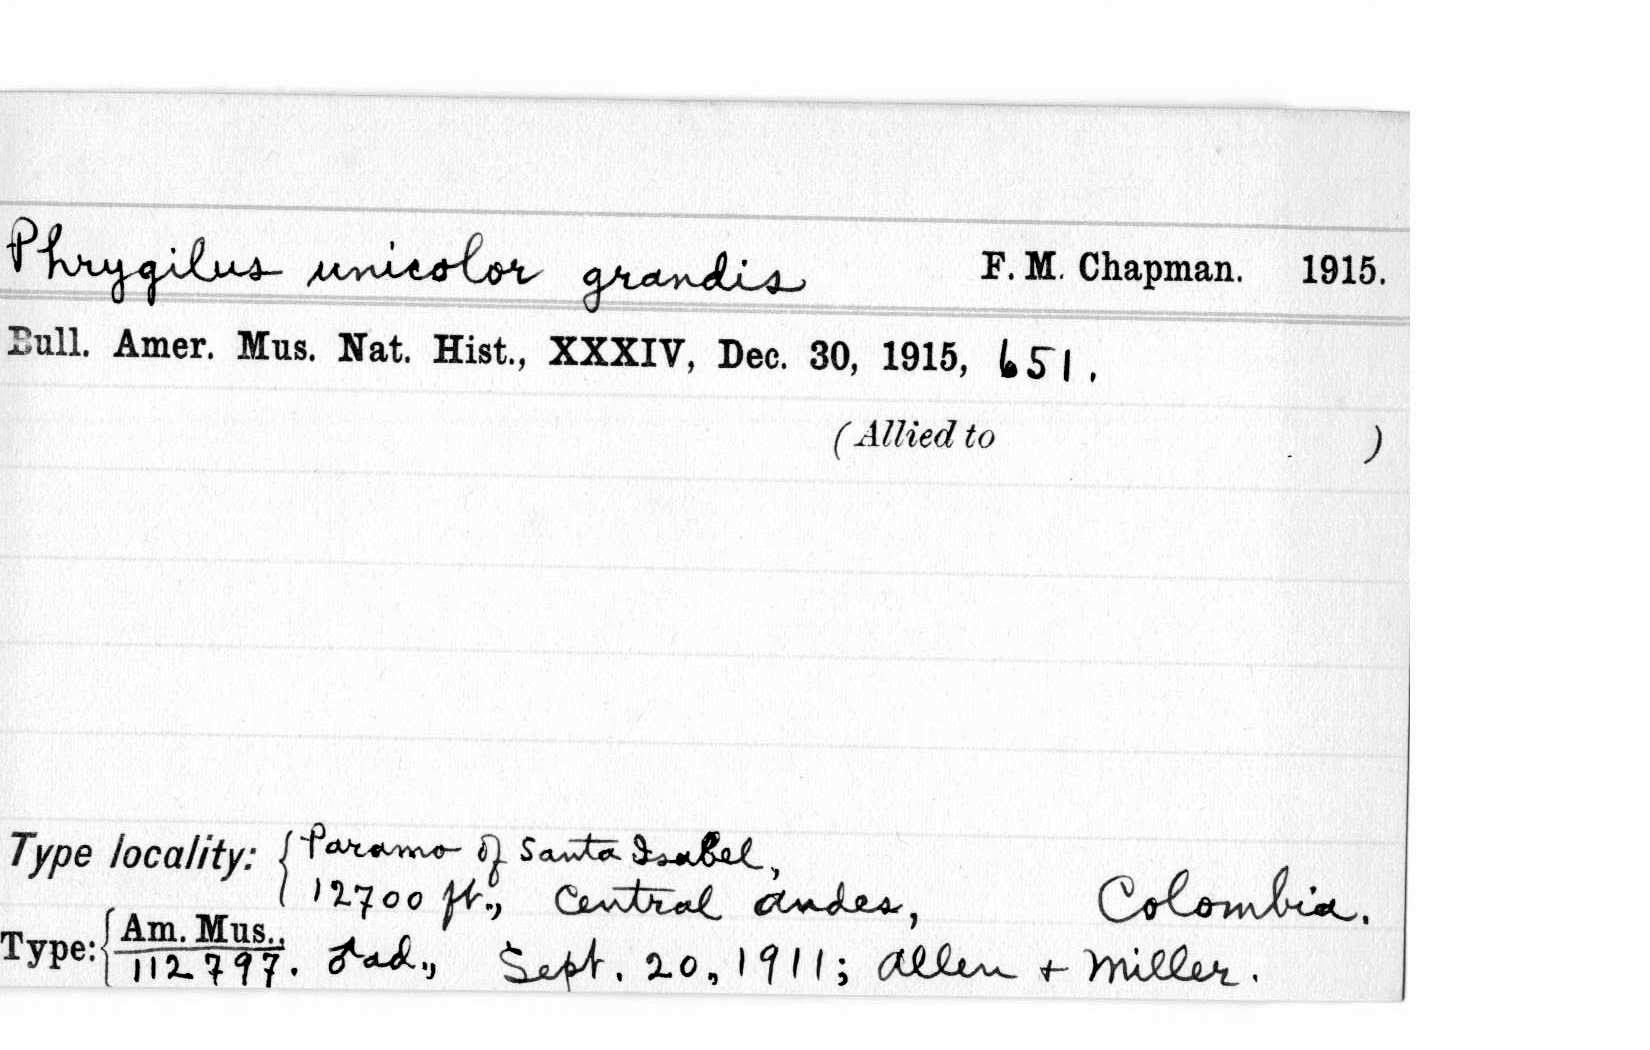 Phrygilus unicolor grandis F. M. Chapman. 1915.
Bull. Amer. Mus. Nat. Hist., XXXIV, Dec. 30, 1915, 651.
(Allied to )
Type locality: { Paramo of Santa Isabel,
12700 ft., Central Andes, Colombia.
Type: { Am. Mus.,
112797. ♂ad., Sept. 20, 1911; Allen + Miller.